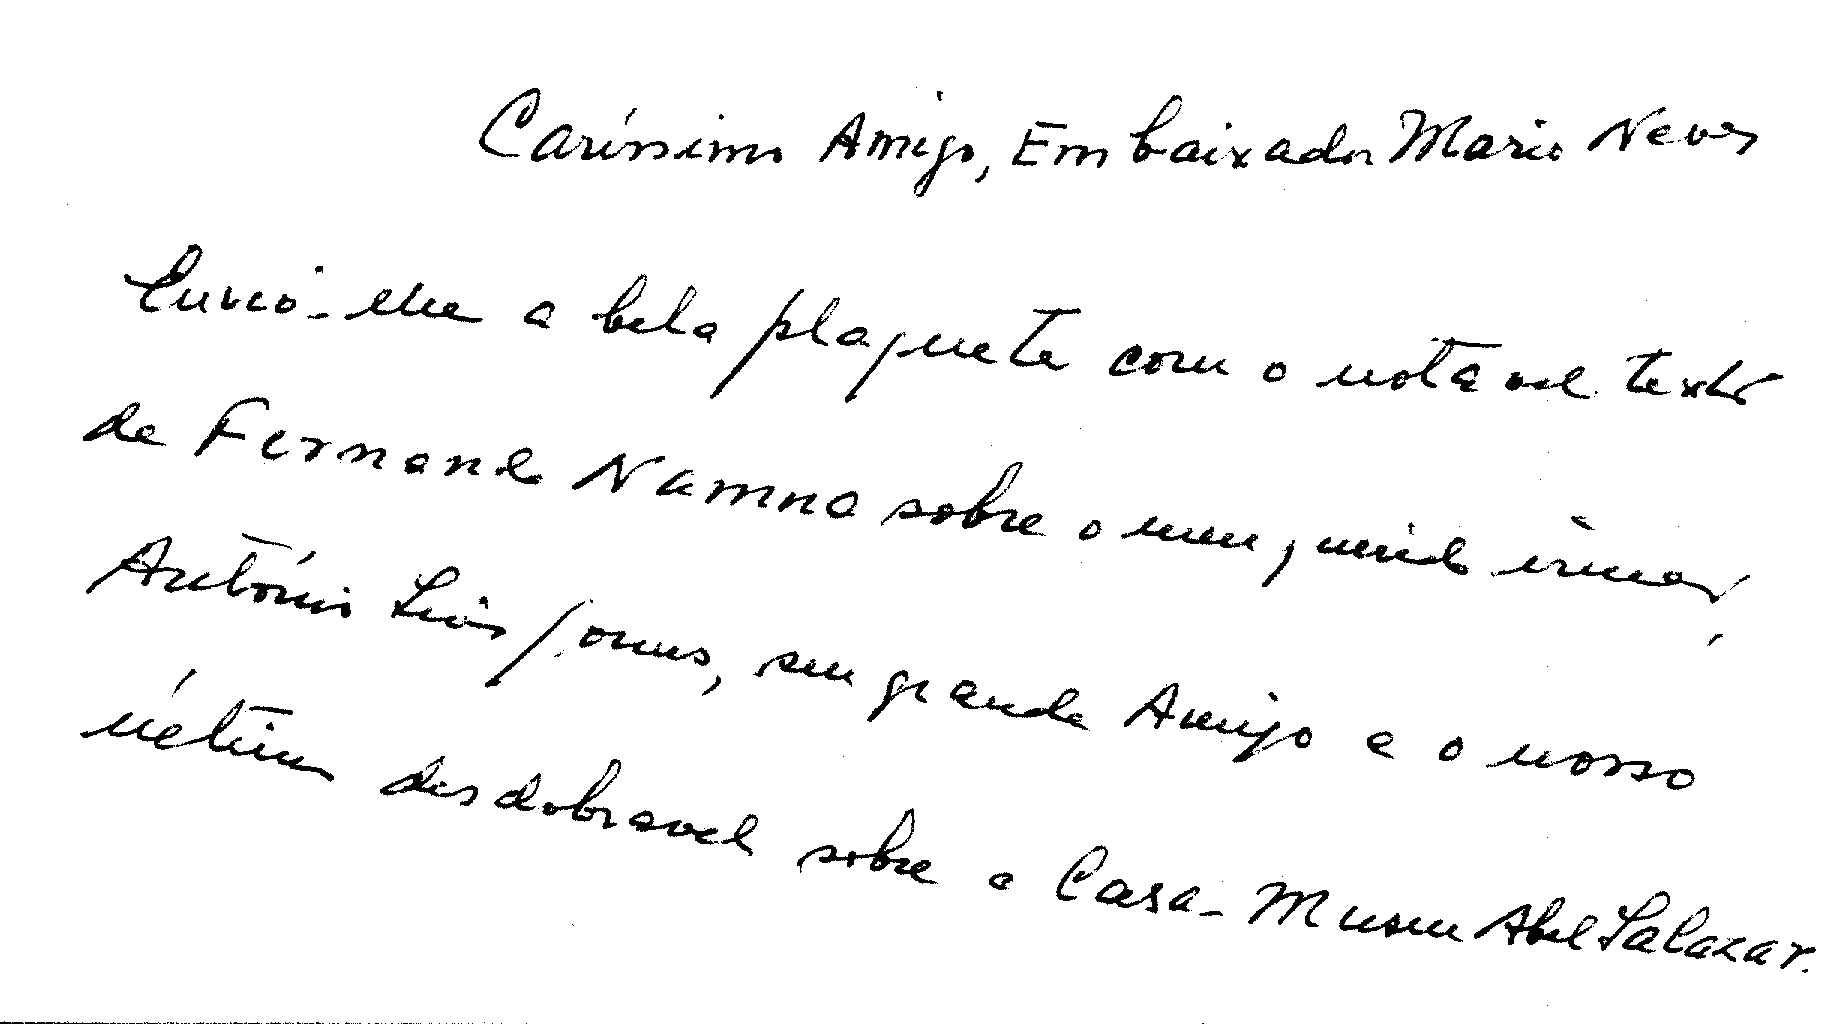 Caríssimo Amigo, Embaixador Mario Neves
Envio-lhe a bela plaquete com o notavel texto
de Fernando Namora sobre o meu querido irmão,
António Luís Gomes, seu grande Amigo e o nosso
último desdobravel sobre a Casa-Museu Abel Salazar.